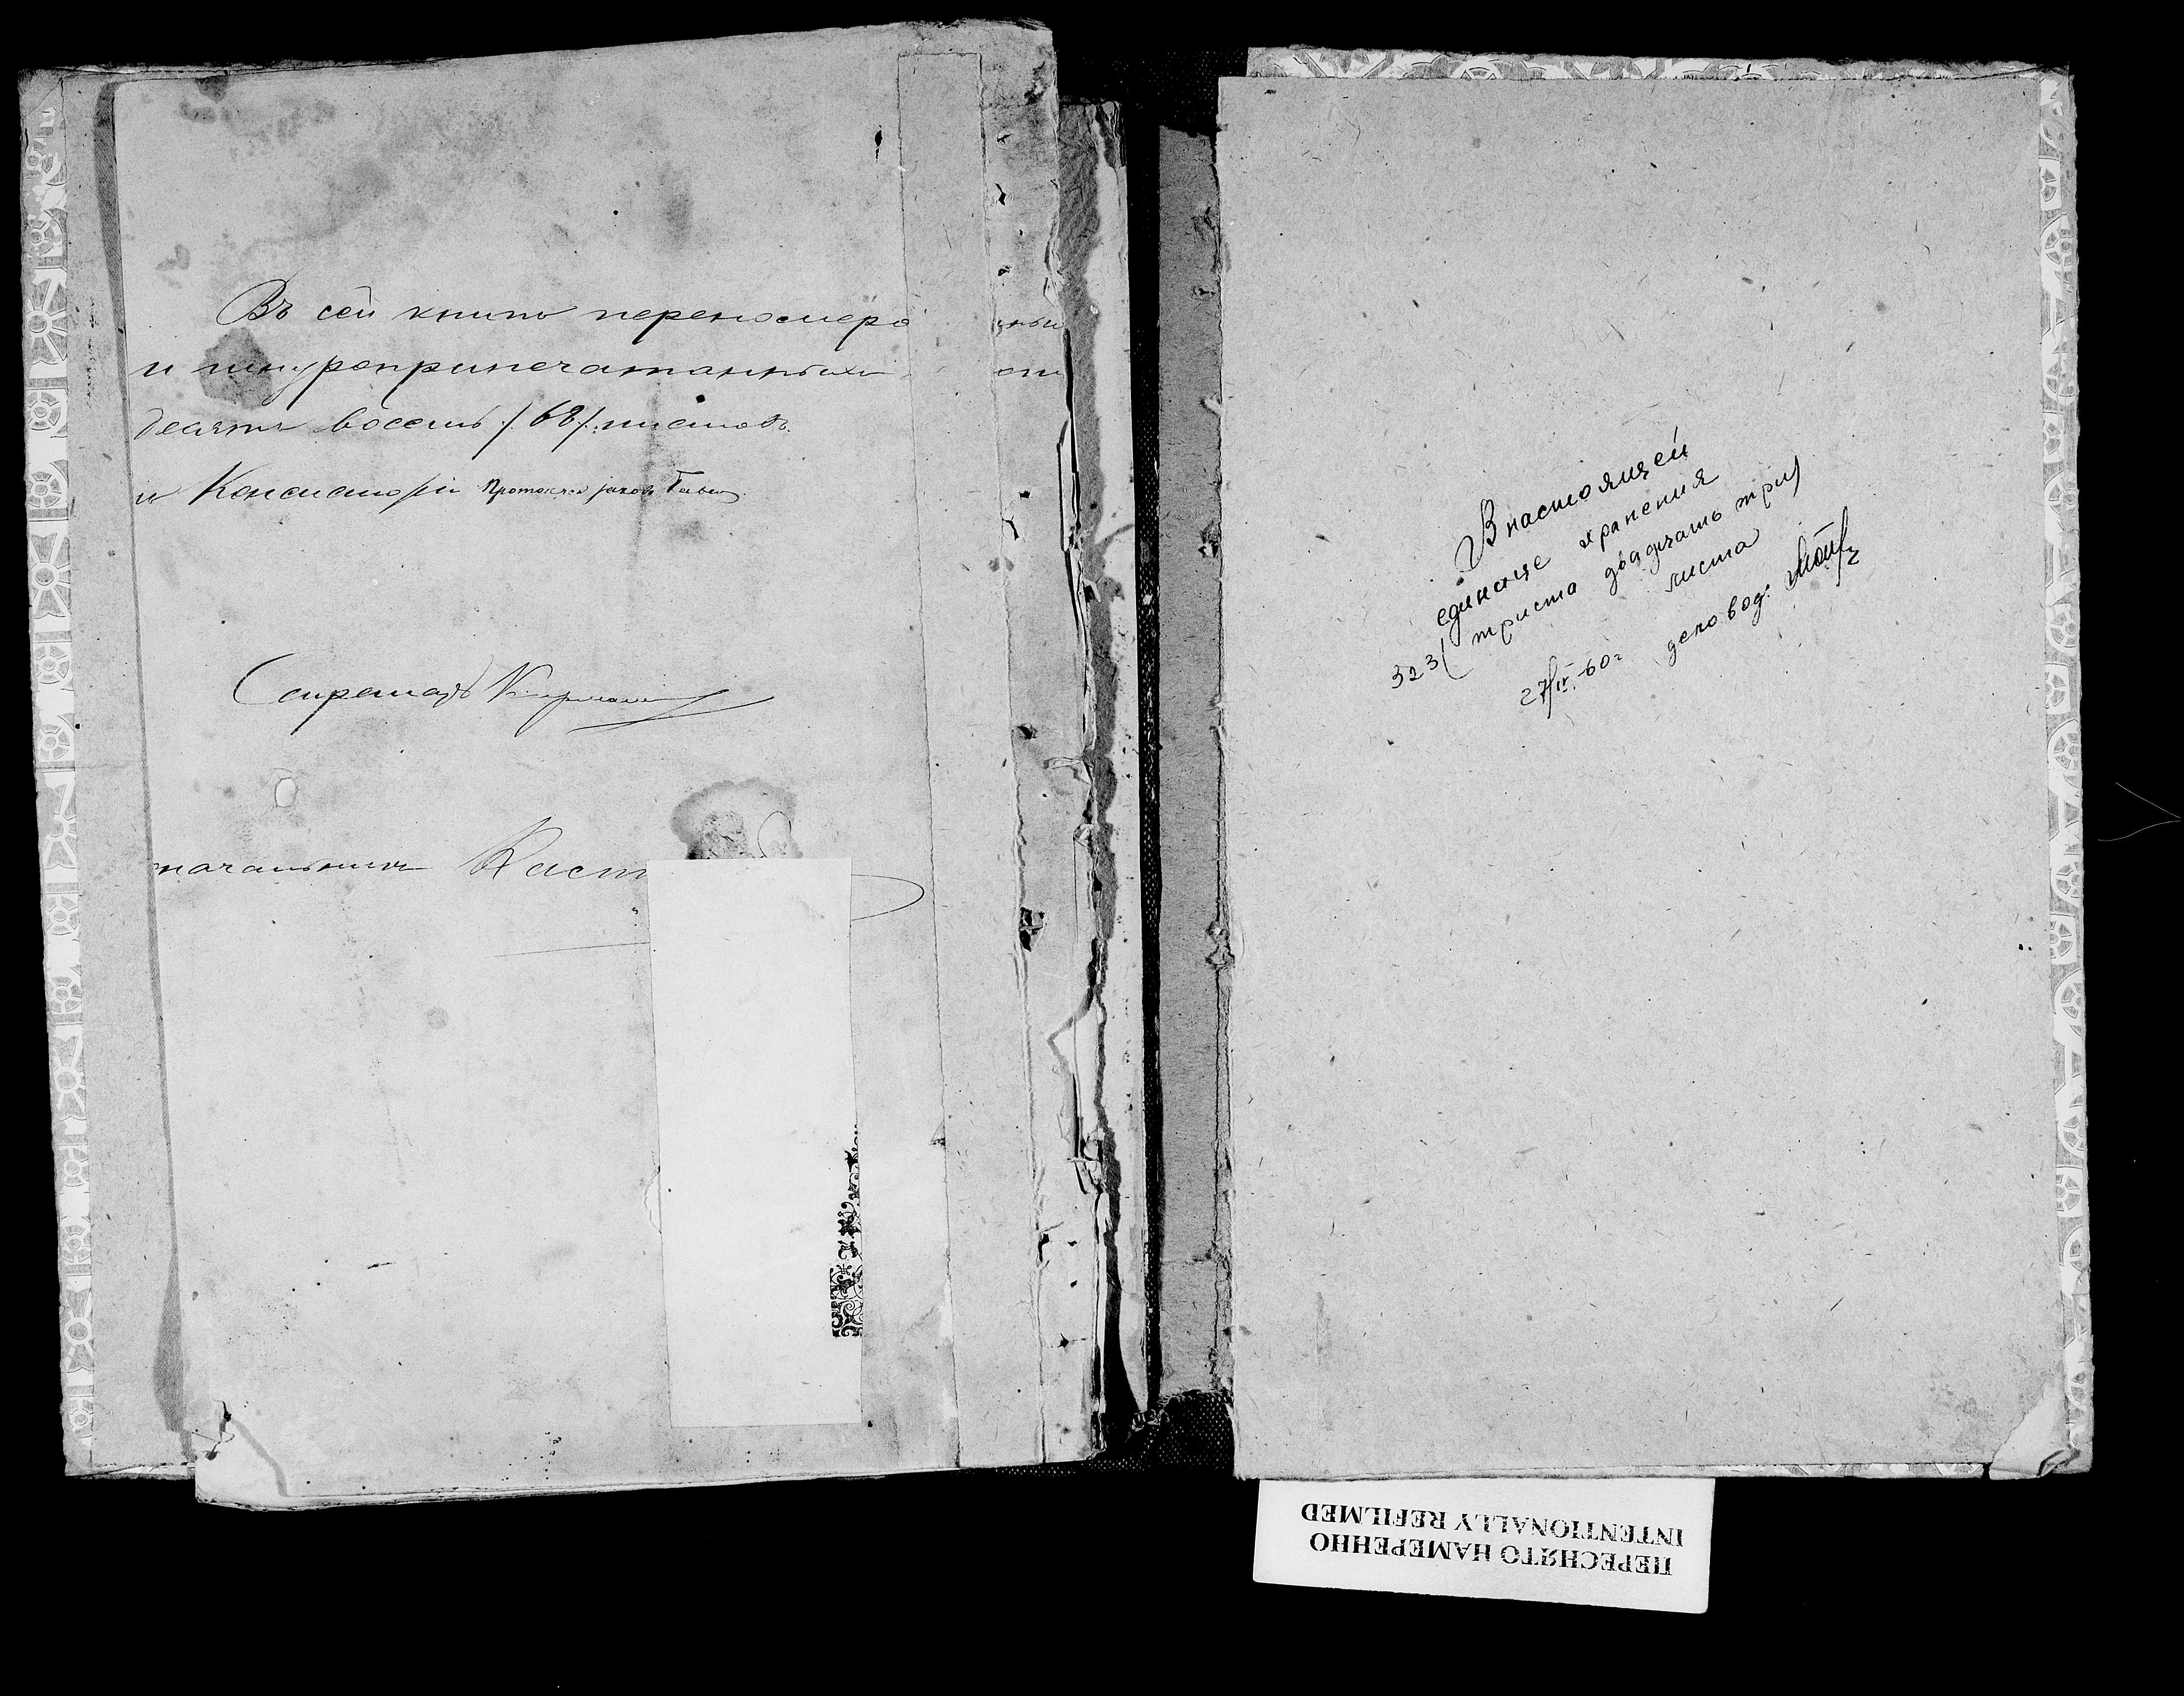 Въ сей книги переномеро ныи
и шнуроприпечатанныхъ
десять восемь /: 68 /: листовъ.
Консисторіи
Секретарь
начальникъ Каст
В настоящей
единице хранения
323 ( триста двадцать три)
листа
27/IV-60г деловод.
ПЕРЕСНЯТО НАМЕРЕННО
INTENTIONALLY REFILMED